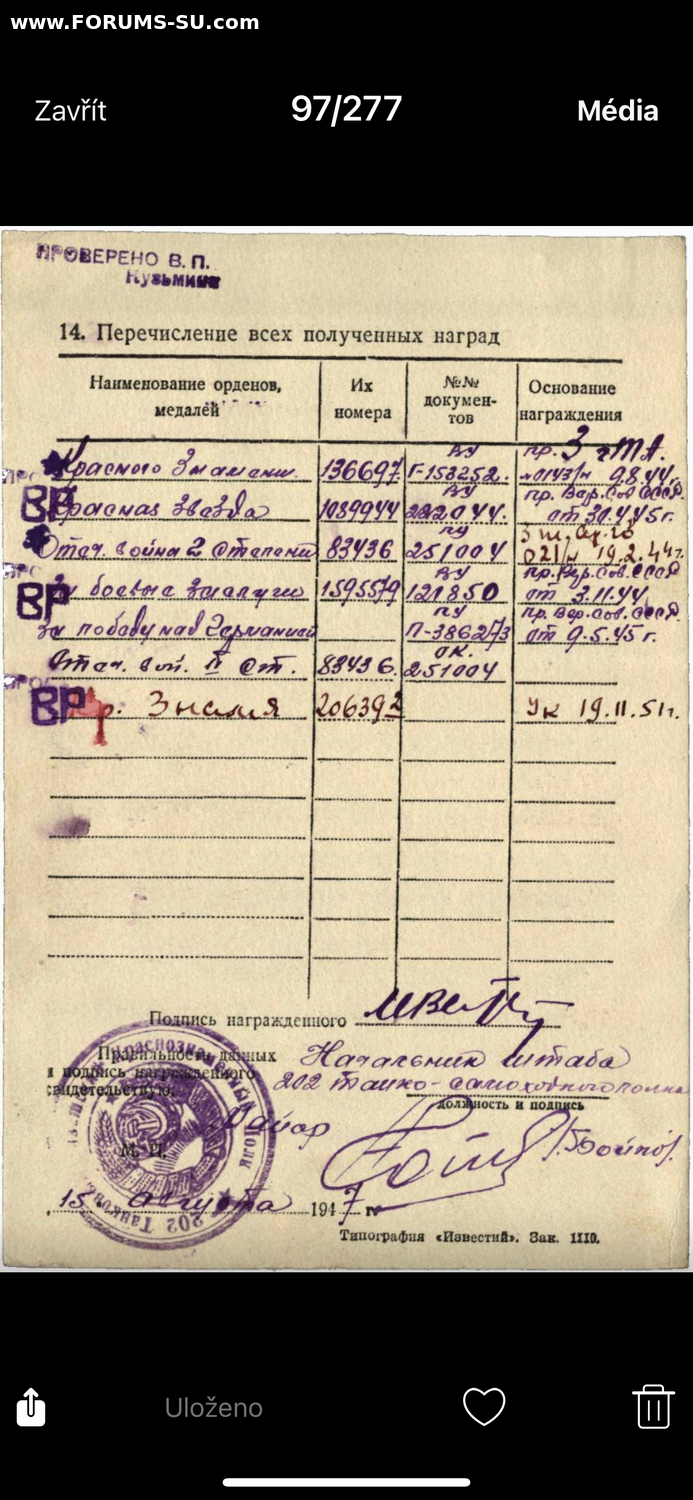 www.FORUMS-SU.com
Zavřít
97/277
Média
ПРОВЕРЕНО В. П.
Кузьмина
14. Перечисление всех полученных наград
Наименование орденов, медалей
Их номера
№№ документов
Основание награждения
Красного Знамени 136697 Г-153252. пр. 3 гТА. №0143/н 9.8.44.
ВР
Красная звезда 1089944 222044. пр. Вер.Сов.СССР. от 30.4.45г.
Отеч. война 2 степени 83436 251004 021/н 19.2.44г.
ВР
За боевые заслуги 1595579 121850 пр. Вер.Сов.СССР от 3.11.44.
за победу над Германией П-386273 пр. Вер.Сов.СССР. от 9.5.45 г.
Отеч. вой. II ст. 83436. ок. 251004
ВР
Кр. Знамя 206392 Ук 19.11.51г.
Подпись награжденного
Правильность данных
и подпись награжденного
свидетельствую:
Начальник штаба
202 танко-самоходного полка
должность и подпись
Майор
М. П.
15 августа 1947 г.
Типография «Известий». Зак. 1110.
Uloženo